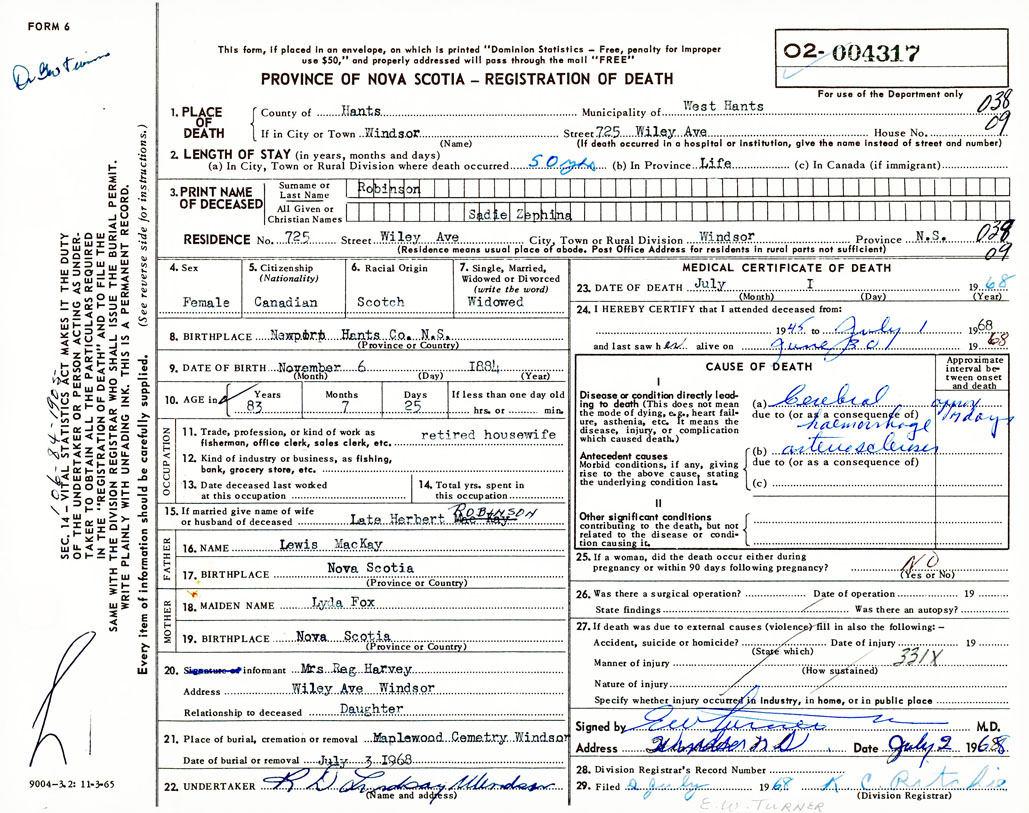 FORM 6
This form, if placed in an envelope, on which is printed "Dominion Statistics – Free, penalty for improper
use $50," and properly addressed will pass through the mail "FREE"
PROVINCE OF NOVA SCOTIA – REGISTRATION OF DEATH
02- 004317
For use of the Department only
038
09
1. PLACE OF DEATH
County of Hants Municipality of West Hants
If in City or Town Windsor Street 725 Wiley Ave House No.
(Name) (If death occurred in a hospital or institution, give the name instead of street and number)
2. LENGTH OF STAY (in years, months and days)
(a) In City, Town or Rural Division where death occurred 50 yrs (b) In Province Life (c) In Canada (if immigrant)
3. PRINT NAME OF DECEASED
Surname or Last Name Robinson
All Given or Christian Names Sadie Zephina
RESIDENCE No. 725 Street Wiley Ave City, Town or Rural Division Windsor Province N.S.
(Residence means usual place of abode. Post Office Address for residents in rural parts not sufficient)
038
09
4. Sex
Female
5. Citizenship
(Nationality)
Canadian
6. Racial Origin
Scotch
7. Single, Married,
Widowed or Divorced
(write the word)
Widowed
8. BIRTHPLACE Newport Hants Co. N.S.
(Province or Country)
9. DATE OF BIRTH November 6 1884
(Month) (Day) (Year)
10. AGE in
Years 83
Months 7
Days 25
If less than one day old
hrs. or min.
OCCUPATION
11. Trade, profession, or kind of work as
fisherman, office clerk, sales clerk, etc. retired housewife
12. Kind of industry or business, as fishing,
bank, grocery store, etc.
13. Date deceased last worked
at this occupation
14. Total yrs. spent in
this occupation
15. If married give name of wife
or husband of deceased Late Herbert Mac Kay ROBINSON
FATHER
16. NAME Lewis MacKay
17. BIRTHPLACE Nova Scotia
(Province or Country)
MOTHER
18. MAIDEN NAME Lyda Fox
19. BIRTHPLACE Nova Scotia
(Province or Country)
20. Signature of informant Mrs Reg Harvey
Address Wiley Ave Windsor
Relationship to deceased Daughter
21. Place of burial, cremation or removal Maplewood Cemetry Windsor
Date of burial or removal July 3 1968
22. UNDERTAKER R D Lindsay Windsor
(Name and address)
MEDICAL CERTIFICATE OF DEATH
23. DATE OF DEATH July I 1968
(Month) (Day) (Year)
24. I HEREBY CERTIFY that I attended deceased from:
1945 to July 1 1968
and last saw her alive on June 30 1968
CAUSE OF DEATH
Approximate
interval be-
tween onset
and death
I
Disease or condition directly lead-
ing to death (This does not mean
the mode of dying, e.g., heart fail-
ure, asthenia, etc. It means the
disease, injury, or complication
which caused death.)
(a) Cerebral
due to (or as a consequence of)
haemorrhage
approx
days
Antecedent causes
Morbid conditions, if any, giving
rise to the above cause, stating
the underlying condition last.
(b) arteriosclerosis
due to (or as a consequence of)
(c)
II
Other significant conditions
contributing to the death, but not
related to the disease or condi-
tion causing it.
25. If a woman, did the death occur either during
pregnancy or within 90 days following pregnancy? NO
(Yes or No)
26. Was there a surgical operation? Date of operation 19
State findings Was there an autopsy?
27. If death was due to external causes (violence) fill in also the following: –
Accident, suicide or homicide? Date of injury 19
(State which)
Manner of injury 331X
(How sustained)
Nature of injury
Specify whether injury occurred in Industry, in home, or in public place
Signed by E W Turner M.D.
Address Windsor N S Date July 2 1968
28. Division Registrar's Record Number
29. Filed 2 July 1968 K C
(Division Registrar)
E.W. TURNER
SEC. 14 – VITAL STATISTICS ACT MAKES IT THE DUTY
OF THE UNDERTAKER OR PERSON ACTING AS UNDER-
TAKER TO OBTAIN ALL THE PARTICULARS REQUIRED
IN THE "REGISTRATION OF DEATH" AND TO FILE THE
SAME WITH THE DIVISION REGISTRAR WHO SHALL ISSUE THE BURIAL PERMIT.
WRITE PLAINLY WITH UNFADING INK. THIS IS A PERMANENT RECORD.
Every item of information should be carefully supplied. (See reverse side for instructions.)
9004–3.2: 11-3-65